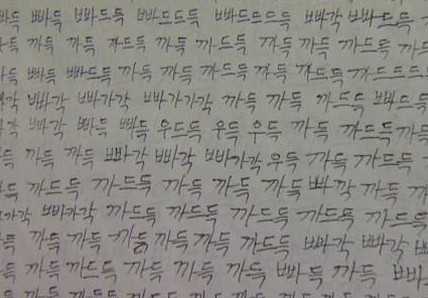 빠득 빠드득 빠드드득 빠드드드득 빠각 빠빠드득
까득 까득 까드득 까득 까드득 까득 까득 까드득
빠득 빠드득 까득 까득 까드드득 까득 까드득 까드드드
빠각 빠가각 빠가가각 까득 까득 까드득 빠드득
빠각 빠득 빠득 우드득 우득 우득 까득 까드득 까득
까득 까득 빠각 빠각 빠가각 우득 까득 까드득
까드득 까드득 까득 까득 까득 빠각 까득
빠가각 까드득 까드득 까드득 까드득 까드득
까득 까득 까득 까득 까득 까드득 빠각 빠각
까득 까드득 까득 까득 까득 빠득 까득